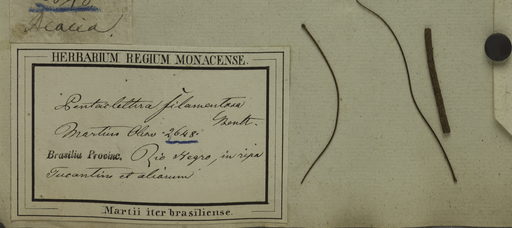 Acacia.
HERBARIUM REGIUM MONACENSE.
Pentaclethra filamentosa
Benth.
Martius Obs. 2648.
Brasilia Provinc. Rio Negro, in ripa
Tucantins et aliarum
Martii iter brasiliense.